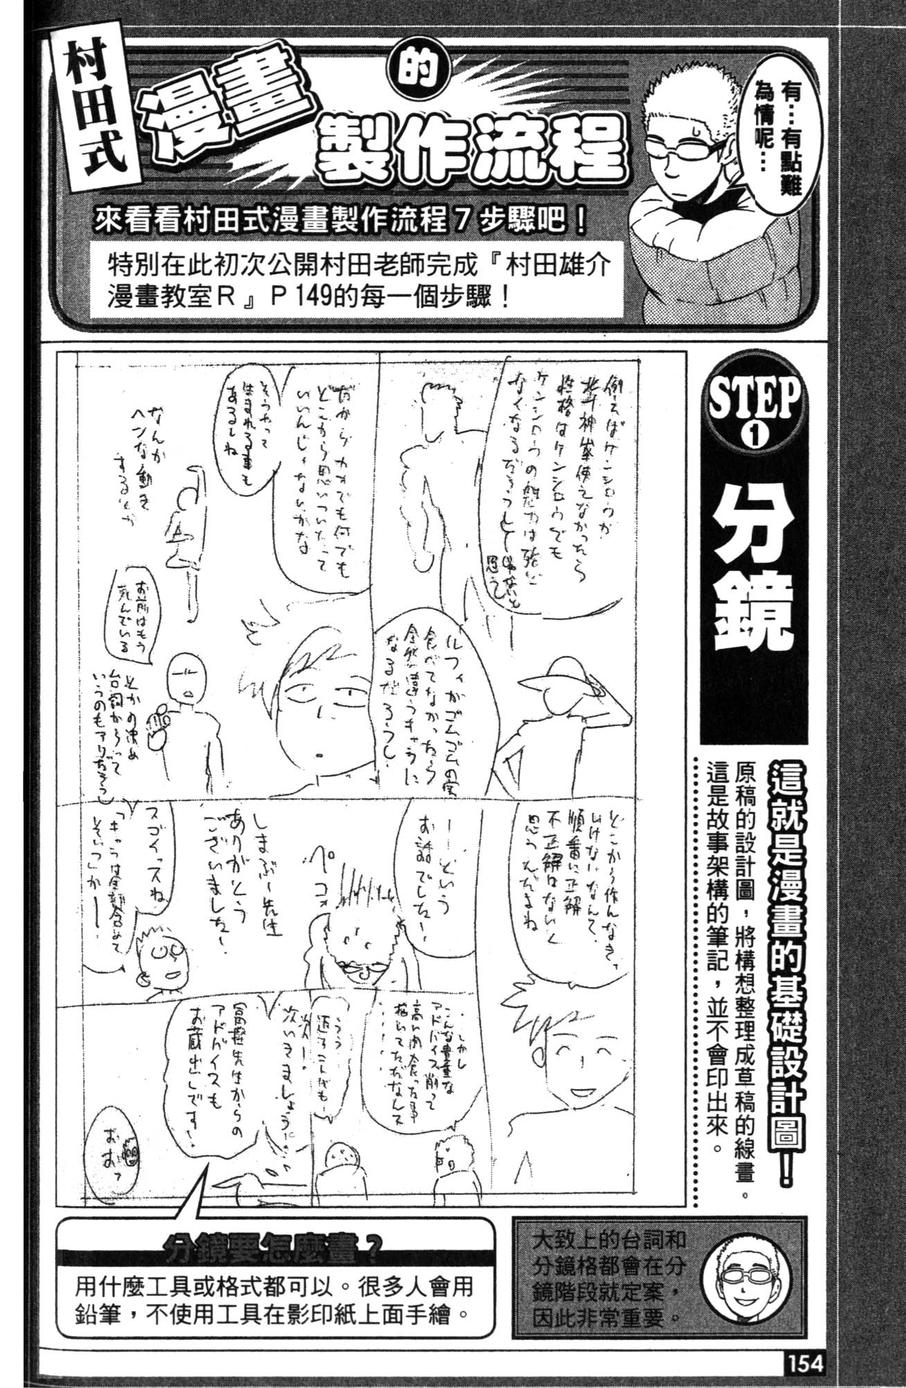 村田式
漫畫的
製作流程
有…有點難
為情呢…
來看看村田式漫畫製作流程7步驟吧！
特別在此初次公開村田老師完成『村田雄介
漫畫教室R』P149的每一個步驟！
STEP
1
分鏡
這就是漫畫的基礎設計圖！
原稿的設計圖，將構想整理成草稿的線畫。
這是故事架構的筆記，並不會印出來。
例えばケンシロウが
北斗神拳使えなかったら
性格はケンシロウでも
ケンシロウの魅力は殆ど
なくなるだろうし
思う
だからカオでも何でも
どこから思いついたって
いいんじゃないかな
そうやって
生まれる事も
あるしね
なんか
ヘンな動き
するとか
ルフィがゴムゴムの実
食べてなかったら
全然違うキャラに
なるだろうし
お前はもう
死んでいる
とかの決め
台詞からって
いうのもアリだろうし
どこから作んなきゃ
いけないなんて
順番に正解
不正解はないと
思うんだよね
ーーという
お話でした！
ペコッ
しまぶー先生
ありがとう
ございました！
スゴイっスね
「キャラは全部含めて
そいつ」かー
しかし
こんな貴重な
アドバイス削って
高い肉食った事
描いてただなんて
……
次！
次いきましょう！
冨樫先生からの
アドバイスも
お蔵出しです！
おおっ
分鏡要怎麼畫？
用什麼工具或格式都可以。很多人會用
鉛筆，不使用工具在影印紙上面手繪。
大致上的台詞和
分鏡格都會在分
鏡階段就定案，
因此非常重要。
154